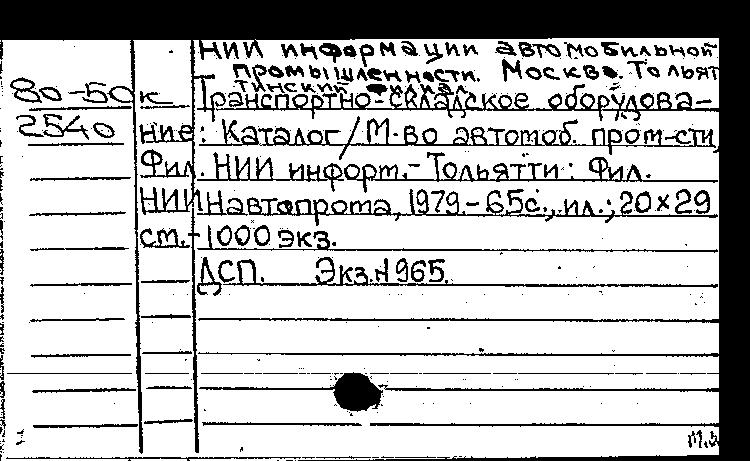 НИИ информации автомобильной
промышленности. Москва. Тольят
тинский филиал
80-50к Транспортно-складское оборудова-
2540 ние: Каталог/М-во автомоб. пром-сти,
Фил. НИИ информ.- Тольятти: Фил.
НИИНавтопрома, 1979.- 65с., ил.; 20×29
см.-1000 экз.
ДСП. Экз.№965.
1